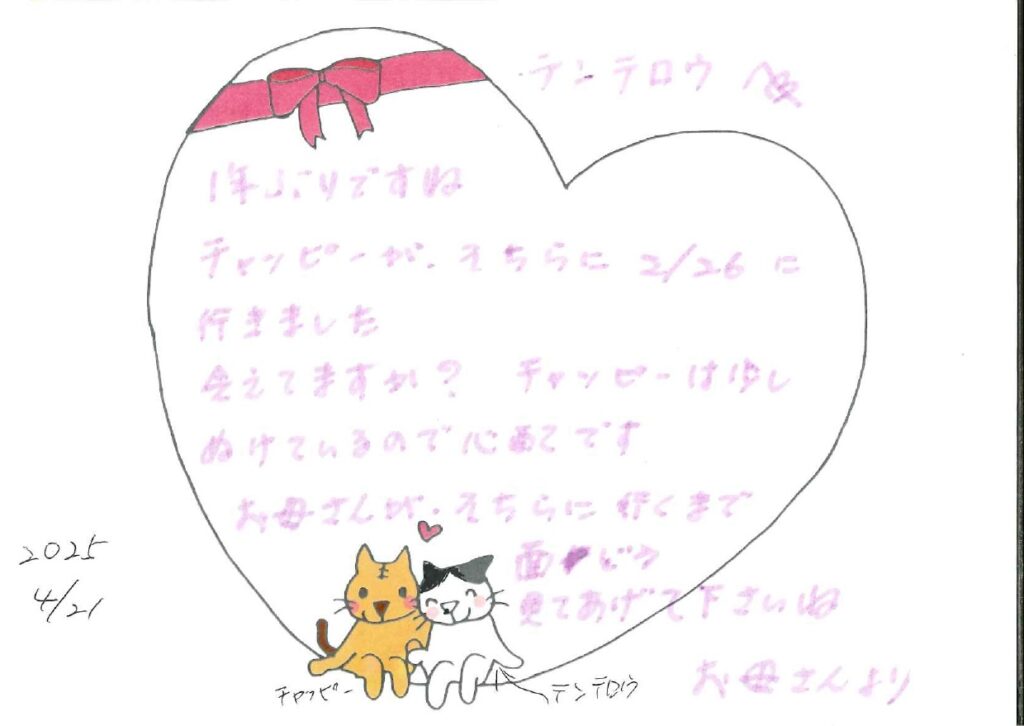 テンテロウ へ
1年ぶりですね
チャッピーが、そちらに 2/26 に
行きました
会えてますか? チャッピーは少し
ぬけているので心配です
お母さんが、そちらに行くまで
面どう
見てあげて下さいね
お母さんより
2025
4/21
チャッピー
テンテロウ